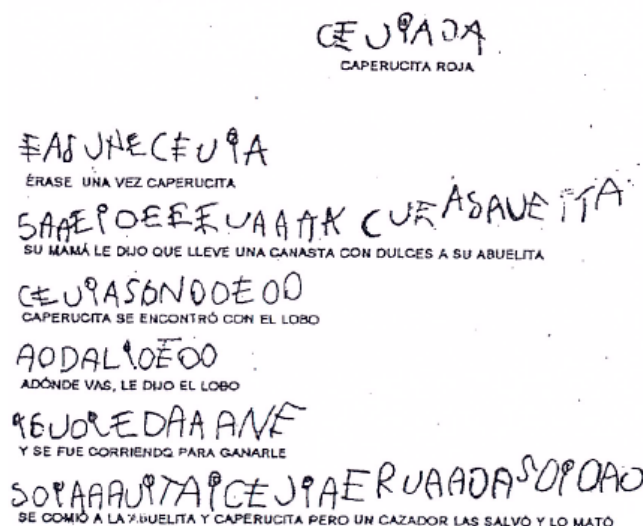 CEUIADA
CAPERUCITA ROJA
EASUNECEUIA
ÉRASE UNA VEZ CAPERUCITA
SAAEIOEEEUAAAA CUEASAUEITA
SU MAMÁ LE DIJO QUE LLEVE UNA CANASTA CON DULCES A SU ABUELITA
CEUIASONOOEOO
CAPERUCITA SE ENCONTRÓ CON EL LOBO
AODALIOEOO
ADÓNDE VAS, LE DIJO EL LOBO
Y SE FUE CORRIENDO PARA GANARLE
SE COMIÓ A LA ABUELITA Y CAPERUCITA PERO UN CAZADOR LAS SALVÓ Y LO MATÓ